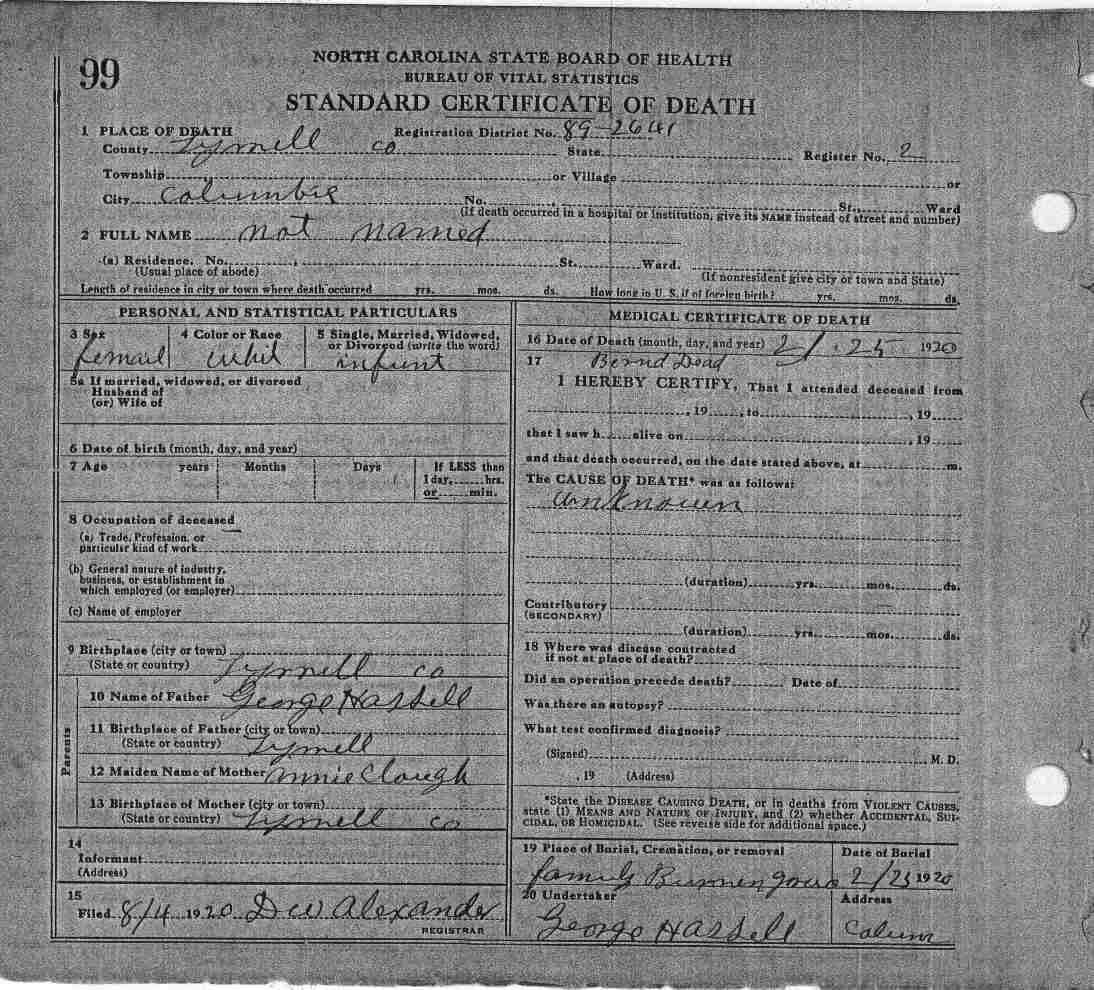 99
NORTH CAROLINA STATE BOARD OF HEALTH
BUREAU OF VITAL STATISTICS
STANDARD CERTIFICATE OF DEATH
1 PLACE OF DEATH Registration District No. 89-2641
County Tyrrell co State Register No. 2
Township or Village or
City Columbia No. St., Ward
(If death occurred in a hospital or institution, give its NAME instead of street and number)
2 FULL NAME not named
(a) Residence. No. , St. Ward.
(Usual place of abode) (If nonresident give city or town and State)
Length of residence in city or town where death occurred yrs. mos. ds. How long in U. S. if of foreign birth? yrs. mos. ds.
PERSONAL AND STATISTICAL PARTICULARS
3 Sex 4 Color or Race 5 Single, Married, Widowed,
or Divorced (write the word)
femail whit infunt
5a If married, widowed, or divorced
Husband of
(or) Wife of
6 Date of birth (month, day, and year)
7 Age years Months Days If LESS than
1 day, hrs.
or min.
8 Occupation of deceased
(a) Trade, Profession, or
particular kind of work
(b) General nature of industry,
business, or establishment in
which employed (or employer)
(c) Name of employer
9 Birthplace (city or town)
(State or country) Tyrrell co
Parents
10 Name of Father George Hassell
11 Birthplace of Father (city or town)
(State or country) Tyrrell
12 Maiden Name of Mother Annie Clough
13 Birthplace of Mother (city or town)
(State or country) Tyrrell co
14
Informant
(Address)
15
Filed 8/4 1920 D W Alexander
REGISTRAR
MEDICAL CERTIFICATE OF DEATH
16 Date of Death (month, day, and year) 2/ 25 1920
17 Bernd Dead
I HEREBY CERTIFY, That I attended deceased from
, 19 , to , 19
that I saw h alive on , 19
and that death occurred, on the date stated above, at m.
The CAUSE OF DEATH* was as follows:
unknown
(duration) yrs. mos. ds.
Contributory
(SECONDARY)
(duration) yrs. mos. ds.
18 Where was disease contracted
if not at place of death?
Did an operation precede death? Date of
Was there an autopsy?
What test confirmed diagnosis?
(Signed) M. D.
, 19 (Address)
*State the DISEASE CAUSING DEATH, or in deaths from VIOLENT CAUSES,
state (1) MEANS AND NATURE OF INJURY, and (2) whether ACCIDENTAL, SUI-
CIDAL, OR HOMICIDAL. (See reverse side for additional space.)
19 Place of Burial, Cremation, or removal Date of Burial
family 2/25 1920
20 Undertaker Address
George Hassell Colum